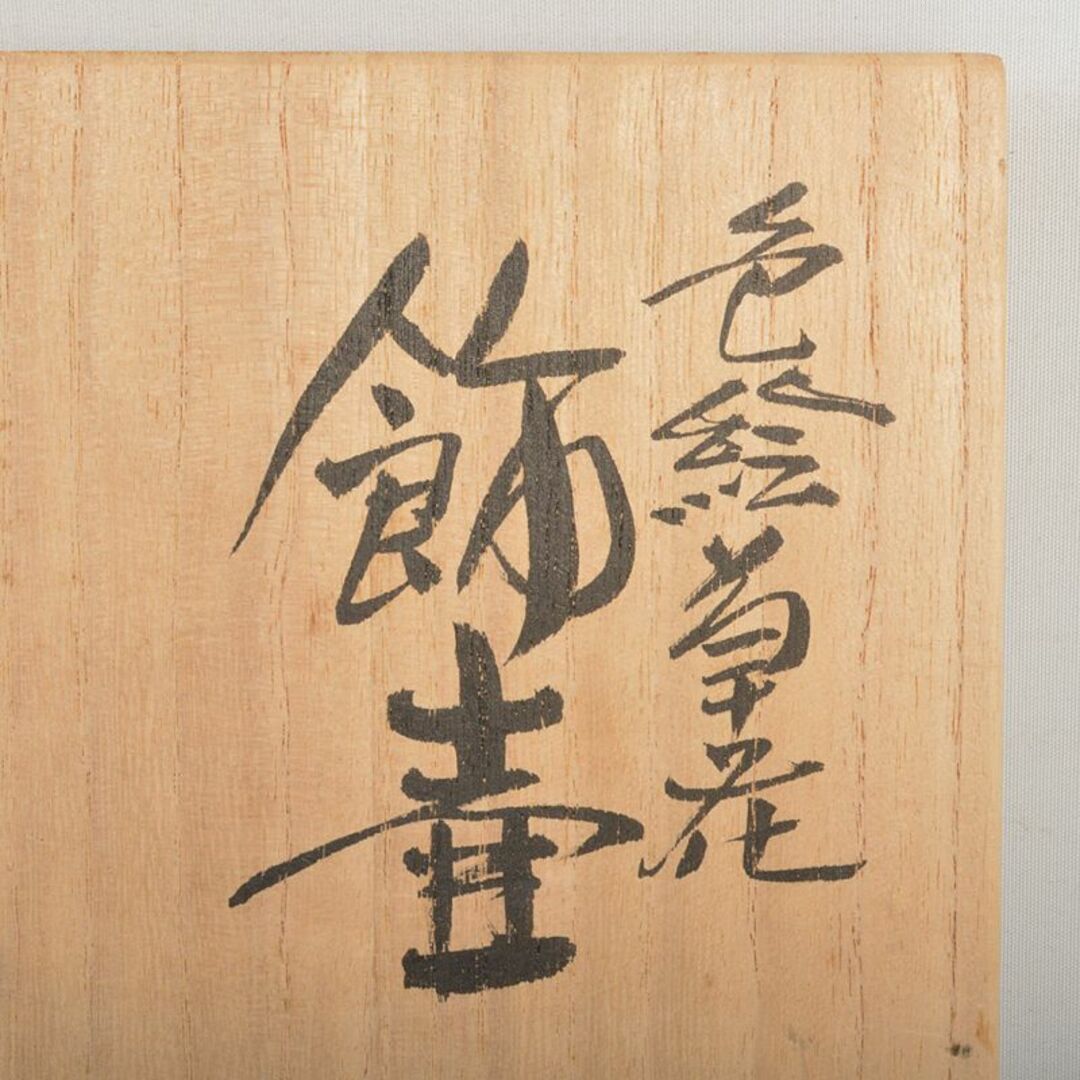 色絵草花
飾壷